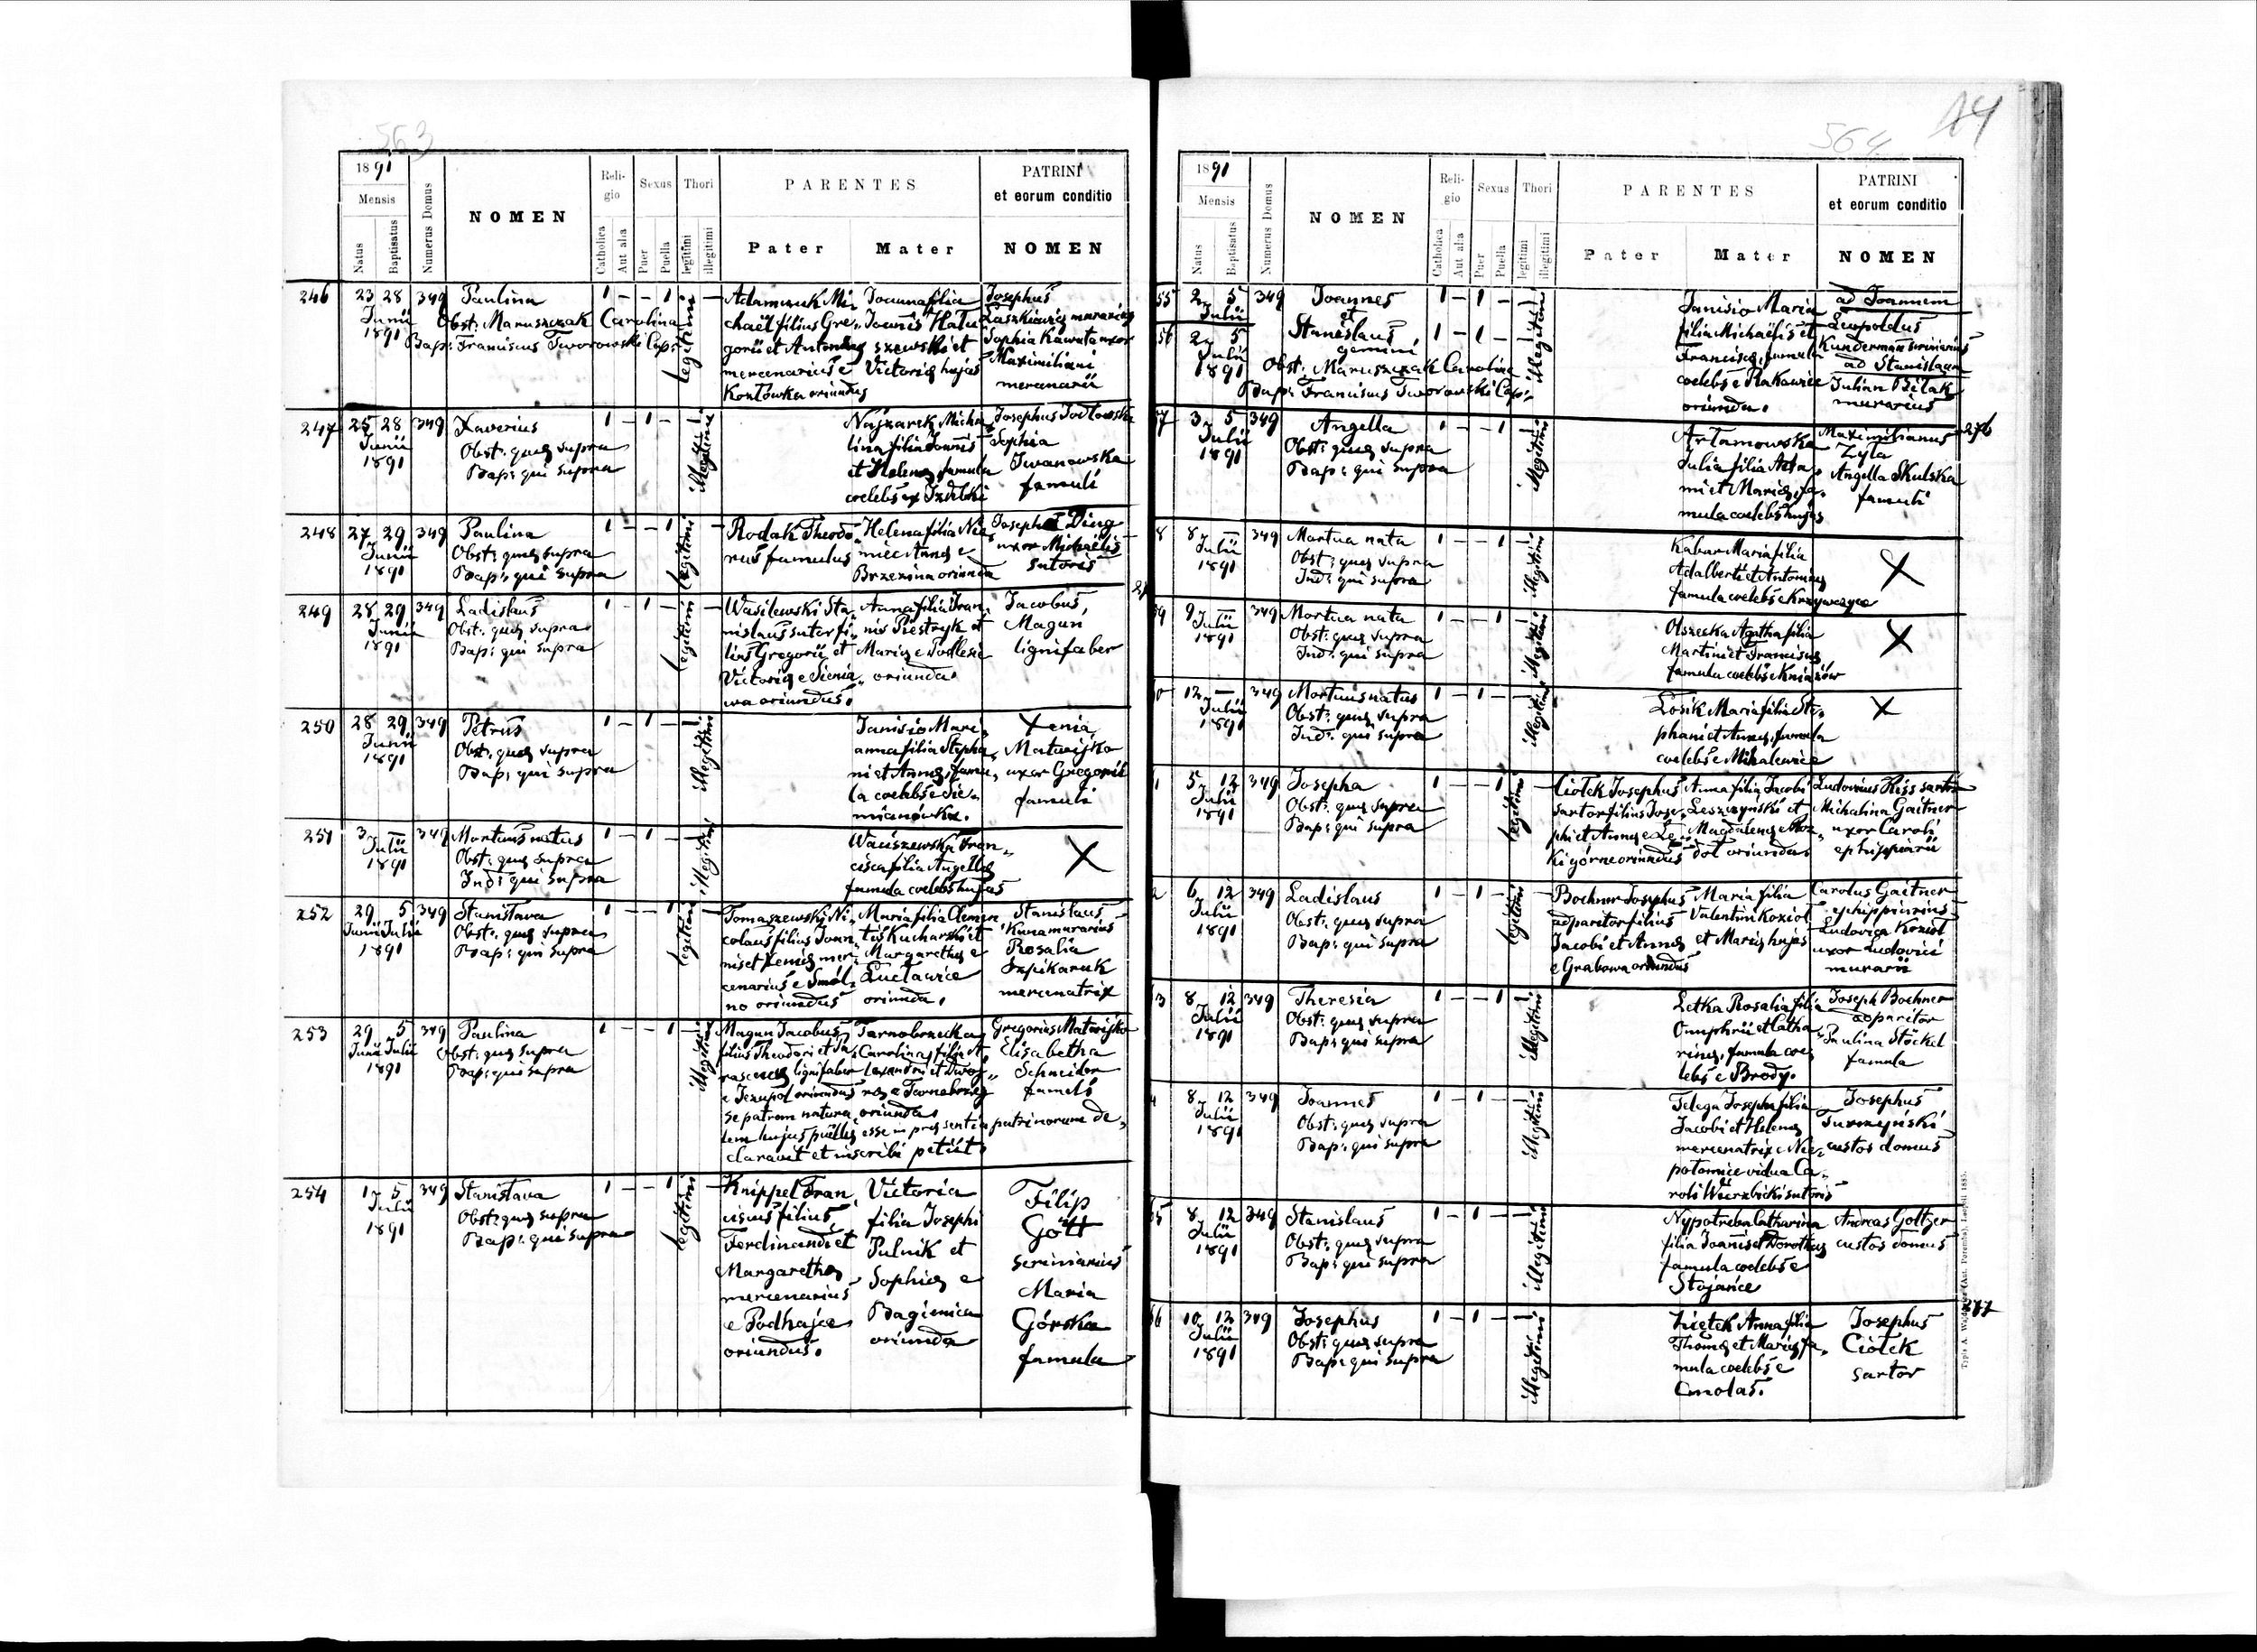 563
1891
Mensis
Natus
Baptisatus
Numerus Domus
NOMEN
Reli-
gio
Catholica
Aut alia
Sexus
Puer
Puella
Thori
legitimi
illegitimi
PARENTES
Pater
Mater
PATRINI
et eorum conditio
NOMEN
246
23 28
Junii
1891
349
Paulina
Obst: Maruszczak Carolina
Bap: Franciscus Tworowski Cop:
1 – – 1
legitimi
Adamczuk Mi-
chaël filius Gre-
gorii et Antoninæ
mercenarius e
Kozłówka oriundus
Joanna filia
Joannis Hatu
szewski et
Victoriæ hujas
Josephus
Laszkiewicz murarius
Sophia Kawuta uxor
Maximiliani
mercenarii
247
25 28
Junii
1891
349
Xaverius
Obst: quæ supra
Bap: qui supra
1 – 1 –
illegitimi
Najzarek Micha
lina filia Joannis
et Helenæ famula
coelebs ex Izdebki
Josephus Jodłowski
Sophia
Iwanowska
famuli
248
27 29
Junii
1891
349
Paulina
Obst: quæ supra
Bap: qui supra
1 – – 1
legitimi
Rodak Theodo-
rus famulus
Helena filia Nie-
miec Annæ e
Brzezina oriunda
Josepha Ding
uxor Michaëlis
sutoris
249
28 29
Junii
1891
349
Ladislaus
Obst: quæ supra
Bap: qui supra
1 – 1 –
legitimi
Wasilewski Sta-
nislaus sutor fi-
lius Gregorii et
Victoriæ e Sienia-
wa oriundus.
Anna filia Joan-
nis Piestryk et
Mariæ e Podlesie
oriunda.
Jacobus,
Magun
lignifaber
250
28 29
Junii
1891
349
Petrus
Obst: quæ supra
Bap: qui supra
1 – 1 –
illegitimi
Janisio Mari-
anna filia Stepha-
ni et Annæ, famu-
la coelebs e Sie-
mianówka.
Xenia
Matwijko
uxor Gregorii
famuli
251
3 –
Julii
1891
349
Mortuus natus
Obst: quæ supra
Ind: qui supra
1 – 1 –
illegitimi
Waciszewska Fran-
cisca filia Angellæ
famula coelebs hujas
X
252
29 5
Junii Julii
1891
349
Stanislava
Obst: quæ supra
Bap: qui supra
1 – – 1
legitimi
Tomaszewski Ni-
colaus filius Joan-
nis et Xeniæ mer-
cenarius e Smól-
no oriundus
Maria filia Clemen-
tis Kucharski et
Margarethæ e
Lucławice
oriunda.
Stanislaus
Kuna murarius
Rosalia
Szpikaruk
mercenatrix
253
29 5
Junii Julii
1891
349
Paulina
Obst: quæ supra
Bap: qui supra
1 – – 1
illegitimi
Magun Jacobus
filius Theodori et Pa-
rasceuæ lignifaber
e Jezupol oriundus
Tarnobrzecka
Carolina filia A-
lexandri et Dwoj-
ræ e Tarnobrzeg
oriunda
se patrem natura-
lem hujus puellæ esse in præsentia patrinorum de-
claravit et inscribi petiit.
Gregorius Matwijko
Elisabetha
Schneider
famuli
254
1 5
Julii
1891
349
Stanislava
Obst: quæ supra
Bap: qui supra
1 – – 1
legitimi
Knippel Fran-
ciscus filius
Ferdinandi et
Margarethæ
mercenarius
e Podhajce
oriundus.
Victoria
filia Josephi
Pulnik et
Sophiæ e
Bagienica
oriunda
Filip
Gött
scriniarius
Maria
Górska
famula
564
1891
Mensis
Natus
Baptisatus
Numerus Domus
NOMEN
Reli-
gio
Catholica
Aut alia
Sexus
Puer
Puella
Thori
legitimi
illegitimi
PARENTES
Pater
Mater
PATRINI
et eorum conditio
NOMEN
55
2 5
Julii
349
Joannes
et
1 – 1 –
56
2 5
Julii
1891
Stanislaus
gemini
Obst: Maruszczak Carolina
Bap: Franciscus Tworowski Cop:
1 – 1 –
illegitimi
Janisio Maria
filia Michaëlis et
Franciscæ, famula
coelebs e Rakowice
oriunda.
ad Joannem
Leopoldus
Kunderman scriniarius
ad Stanislaum
Julian Bilak
murarius
57
3 5
Julii
1891
349
Angella
Obst: quæ supra
Bap: qui supra
1 – – 1
illegitimi
Artamowska
Julia filia Arta-
mi et Mariæ, fa-
mula coelebs hujas
Maximilianus
Zyla
Angella Skulska
famuli
276
8
8 –
Julii
1891
349
Mortua nata
Obst: quæ supra
Ind: qui supra
1 – – 1
illegitimi
Kabar Maria filia
Adalberti et Antoninæ
famula coelebs e Krzywczyce
X
59
9 –
Julii
1891
349
Mortua nata
Obst: quæ supra
Ind: qui supra
1 – – 1
illegitimi
Olszecka Agatha filia
Martini et Franciscæ
famula coelebs e Kniażów
X
0
12 –
Julii
1891
349
Mortuus natus
Obst: quæ supra
Ind: qui supra
1 – 1 –
illegitimi
Łosik Maria filia Ste-
phani et Annæ, famula
coelebs e Mikalewice
X
1
5 12
Julii
1891
349
Josepha
Obst: quæ supra
Bap: qui supra
1 – – 1
legitimi
Ciołek Josephus
sartor filius Jose-
phi et Annæ e Łę-
ki górne oriundus
Anna filia Jacobi
Leszczyński et
Magdalenæ e Roz-
dół oriunda
Ludovicus Hiss sartor
Michalina Gaitner
uxor Caroli
ephippiarii
2
6 12
Julii
1891
349
Ladislaus
Obst: quæ supra
Bap: qui supra
1 – 1 –
legitimi
Bochner Josephus
adparitor filius
Jacobi et Annæ
e Grabowa oriundus
Maria filia
Valentini Kozioł
et Mariæ hujas
Carolus Gaitner
ephippiarius
Ludovica Kozioł
uxor Ludovici
murarii
3
8 12
Julii
1891
349
Theresia
Obst: quæ supra
Bap: qui supra
1 – – 1
illegitimi
Letka Rosalia filia
Onuphrii et Catha-
rinæ, famula coe-
lebs e Brody.
Joseph Bochner
adparitor
Paulina Stöckel
famula
4
8 12
Julii
1891
349
Joannes
Obst: quæ supra
Bap: qui supra
1 – 1 –
illegitimi
Telega Josepha filia
Jacobi et Helenæ
mercenatrix e Nie-
połomice vidua Ca-
roli Wierzbicki sutoris
Josephus
Turzyński
custos domus
65
8 12
Julii
1891
349
Stanislaus
Obst: quæ supra
Bap: qui supra
1 – 1 –
illegitimi
Nypotreba Catharina
filia Joannis et Dorotheæ
famula coelebs e
Stojańce
Andreas Goltzer
custos domus
66
10 12
Julii
1891
349
Josephus
Obst: quæ supra
Bap: qui supra
1 – 1 –
illegitimi
Zietek Anna filia
Thomæ et Mariæ fa-
mula coelebs e
Cmolas.
Josephus
Ciołek
sartor
277